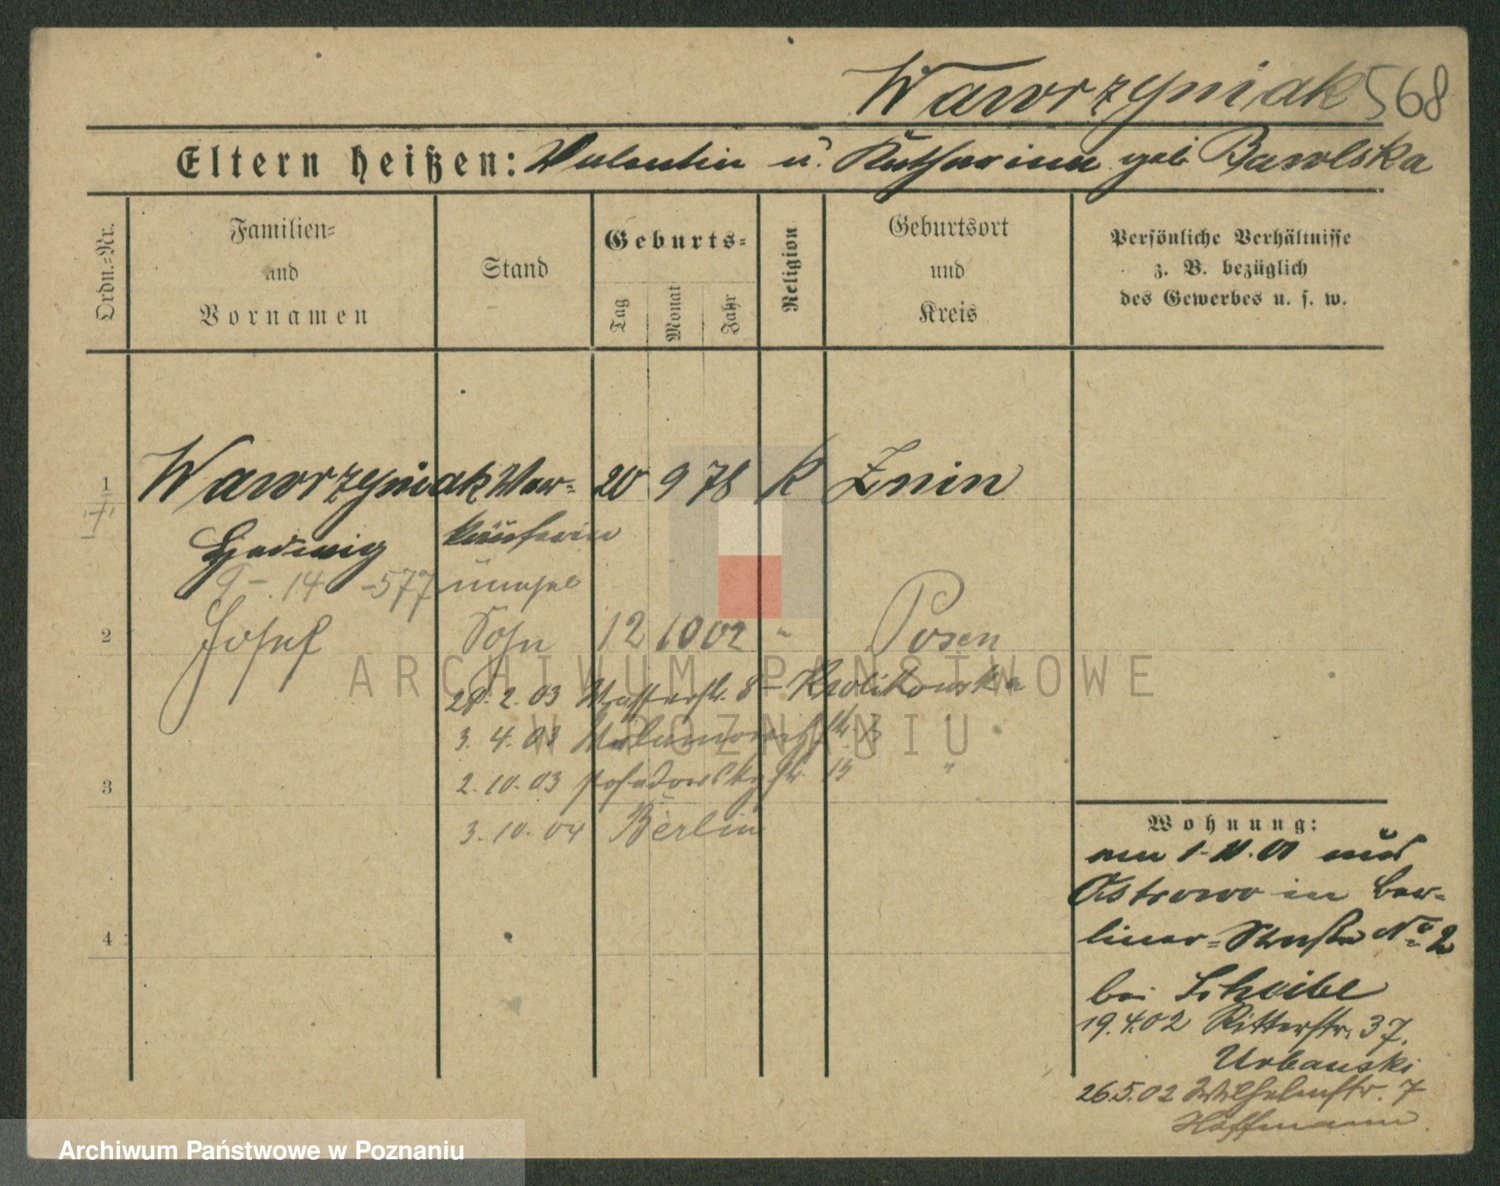 Wawrzyniak 568
Eltern heißen: Valentin u. Katharina geb Bawlska
Ordn.-Nr.
Familien-
und
Vornamen
Stand
Geburts-
Tag
Monat
Jahr
Religion
Geburtsort
und
Kreis
Persönliche Verhältnisse
z. B. bezüglich
des Gewerbes u. s. w.
1 Wawrzyniak Ver- 20 9 78 K Znin
Hedwig käuferin
9 - 14 - 577
2 Josef Sohn 12 10 02 " Posen
28. 2. 03 Wasserstr. 8 - Krolikowska
3. 4. 03
2. 10. 03 Posadowskystr. 15 "
3
3. 10. 04 Berlin
4
Wohnung:
am 1. 11. 01 aus
Ostrowo in Ber-
liner-Straße No 2
bei Scheibe
19.4.02 Ritterstr. 37.
Urbanski
26.5.02 Wilhelmstr. 7
Hoffmann.
ARCHIWUM PAŃSTWOWE
W POZNANIU
Archiwum Państwowe w Poznaniu